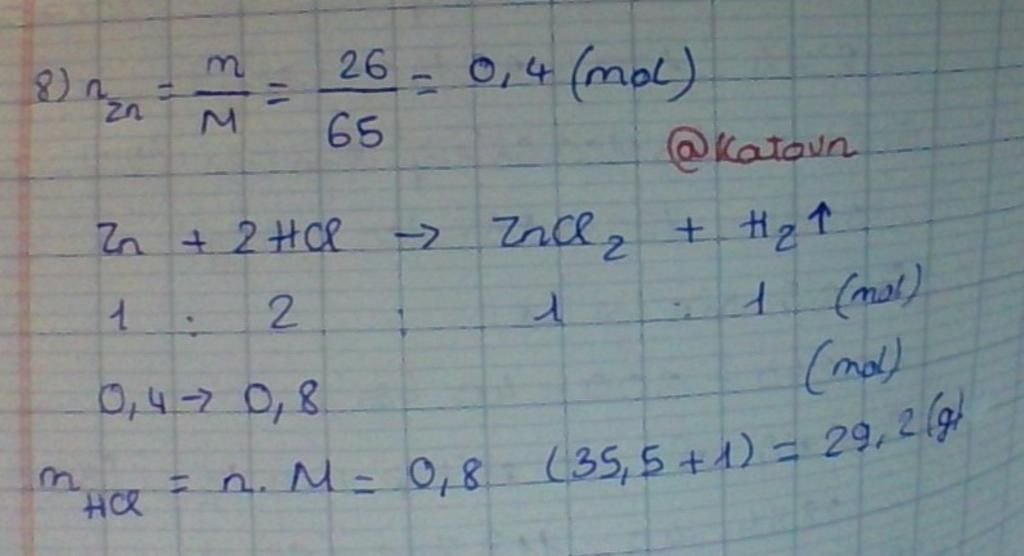 8) n_Zn = m/M = 26/65 = 0,4 (mol)
@Katavn
Zn + 2HCl → ZnCl₂ + H₂↑
1 : 2 : 1 : 1 (mol)
(mol)
0,4 → 0,8
m_HCl = n. M = 0,8 (35,5 + 1) = 29,2 (g)